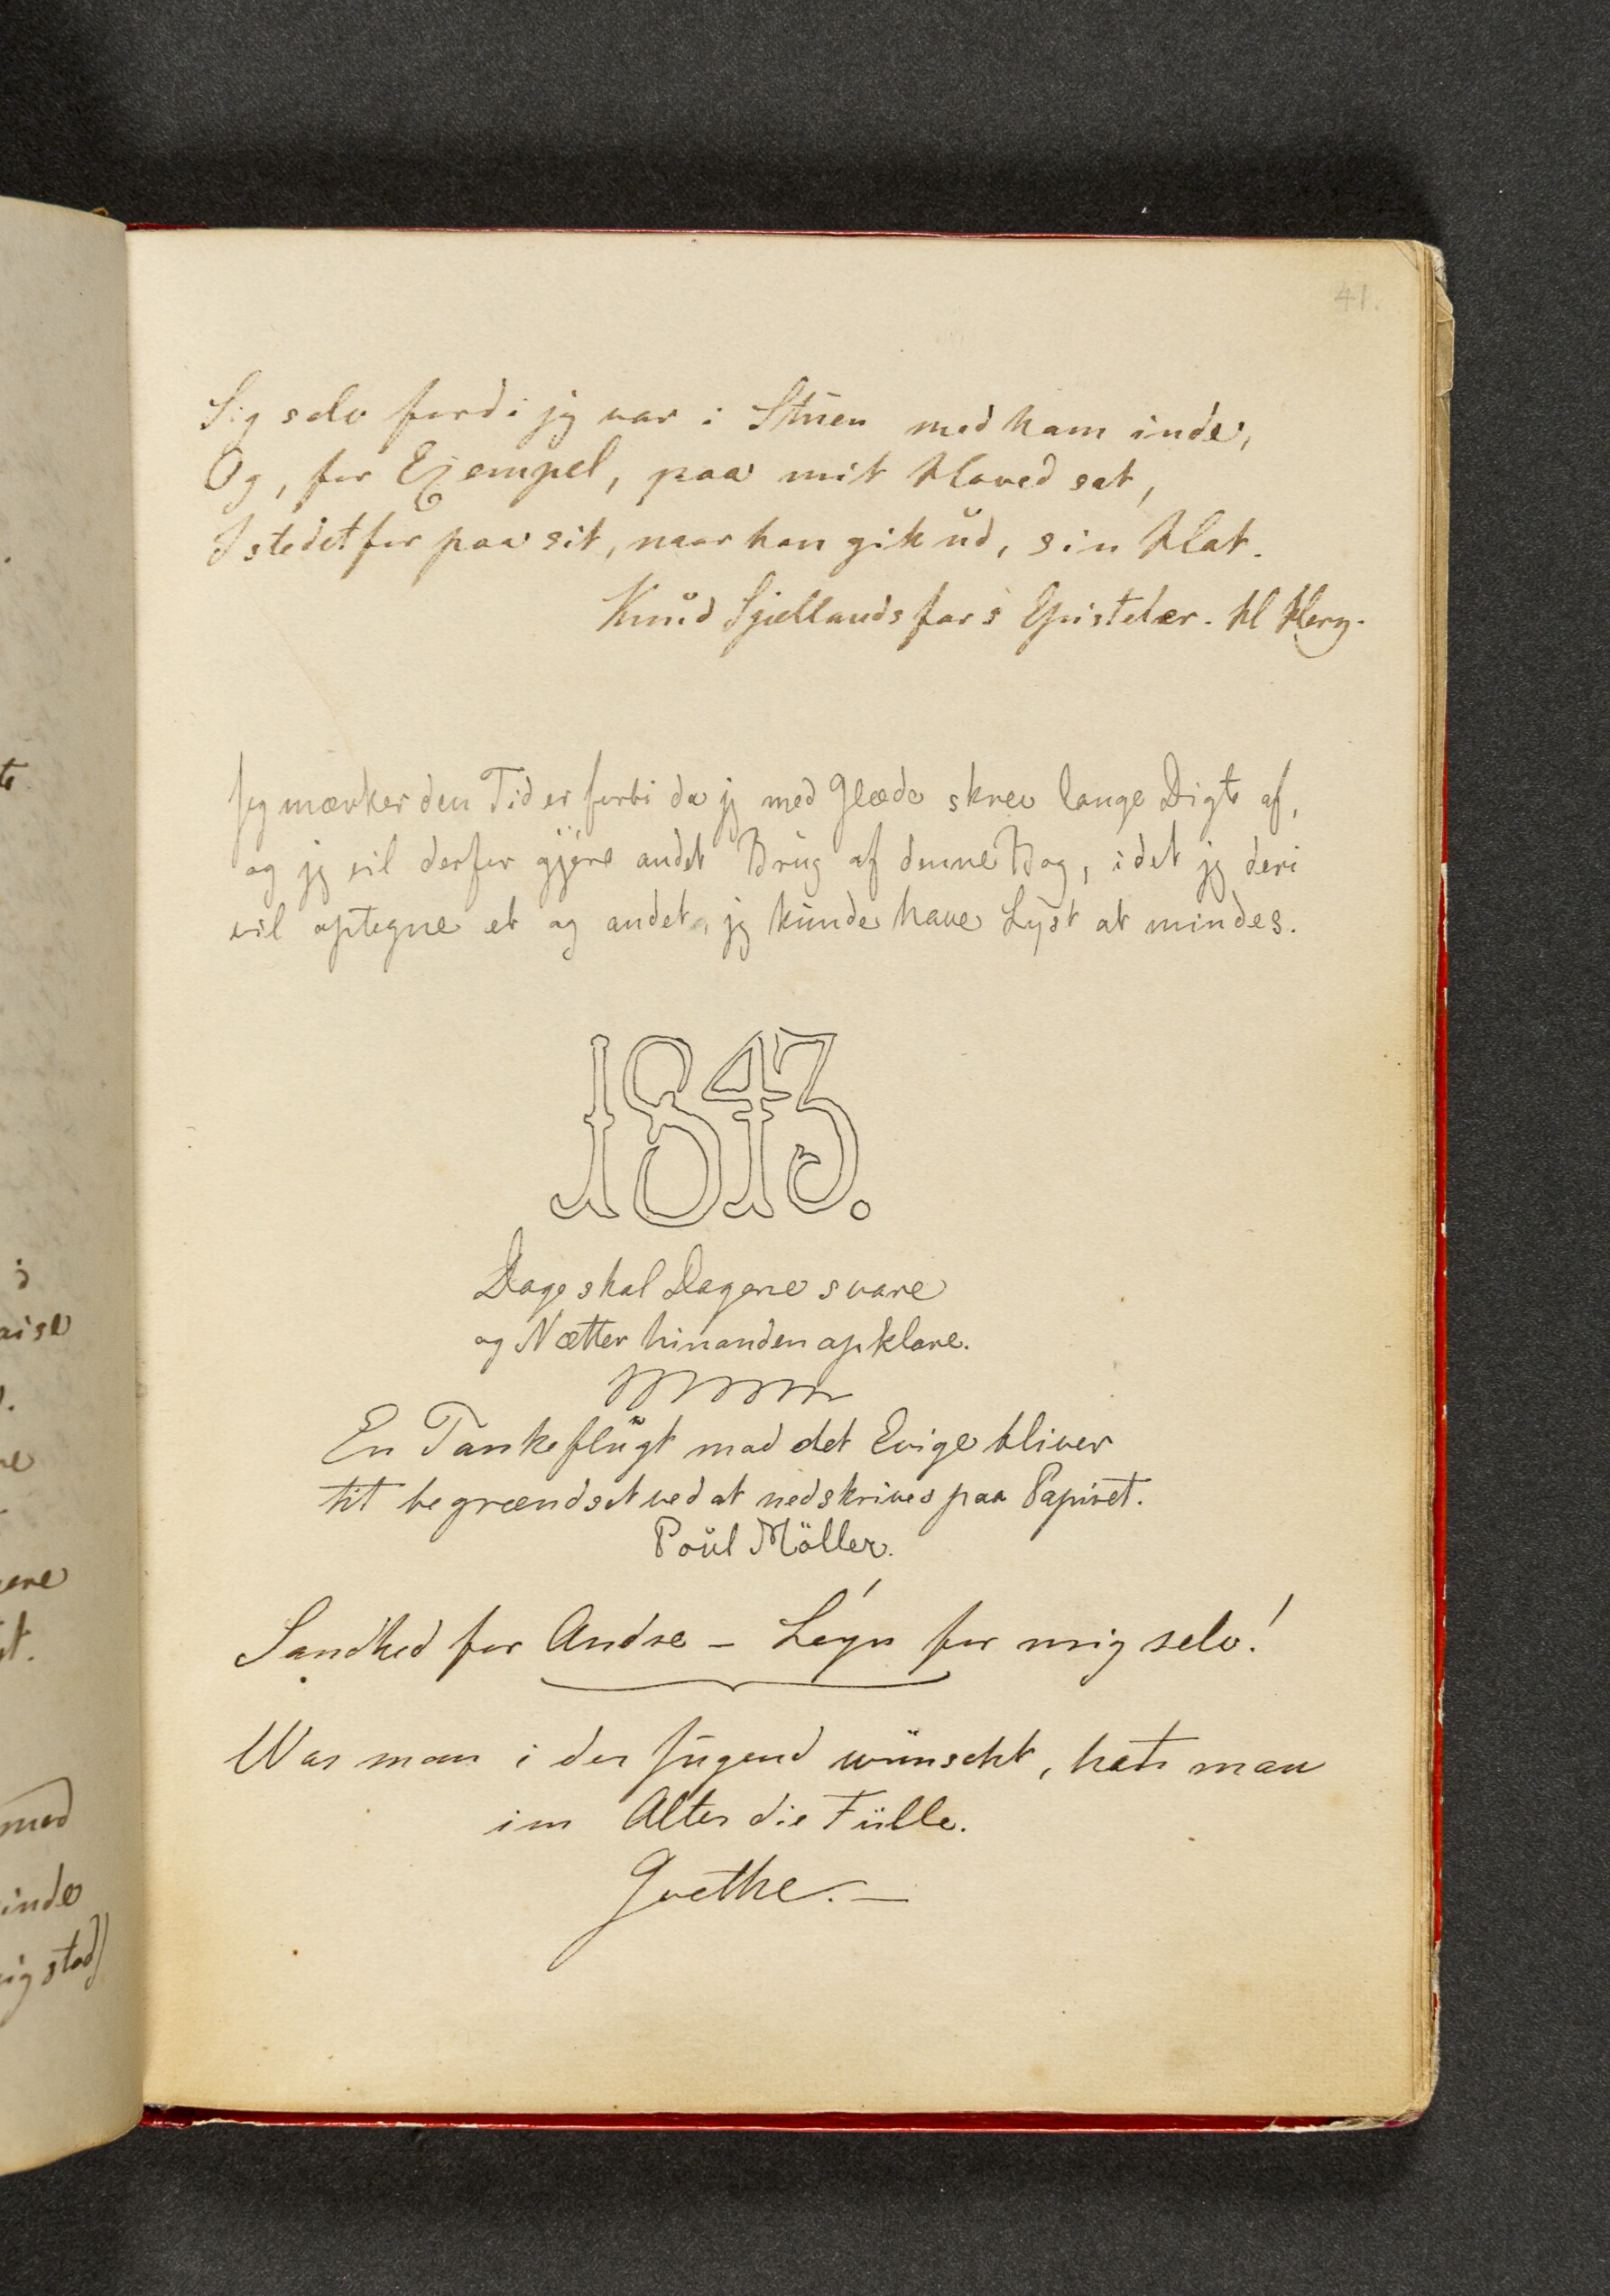 41.
Sig selv fordi jg var i Stuen med ham inde,
Og, for Exempel, paa mit Hoved sat,
I stedetfor paa sit, naar han gik ud, sin Hat.
Knud Sjællandsfars Epistler. H Herz.
Jeg mærker den Tid er forbi da jg med Glæde skrev lange Digte af,
og jg vil derfor gjøre andet Brug af denne Bog, idet jg deri
vil optegne et og andet, jg kunde have Lyst at mindes.
1843.
Dage skal Dagene svare
og Nætter hinanden opklare.
En Tankeflugt mod det Evige bliver
tit begrændset ved at nedskrives paa Papiret.
Poul Möller.
Sandhed for Andre – Løgn for mig selv!
Was man i der Jugend wünscht, hat man
im Alter die Fülle.
Goethe. –
te
i
aise
ne
ere
st.
med
inde
ig stod)